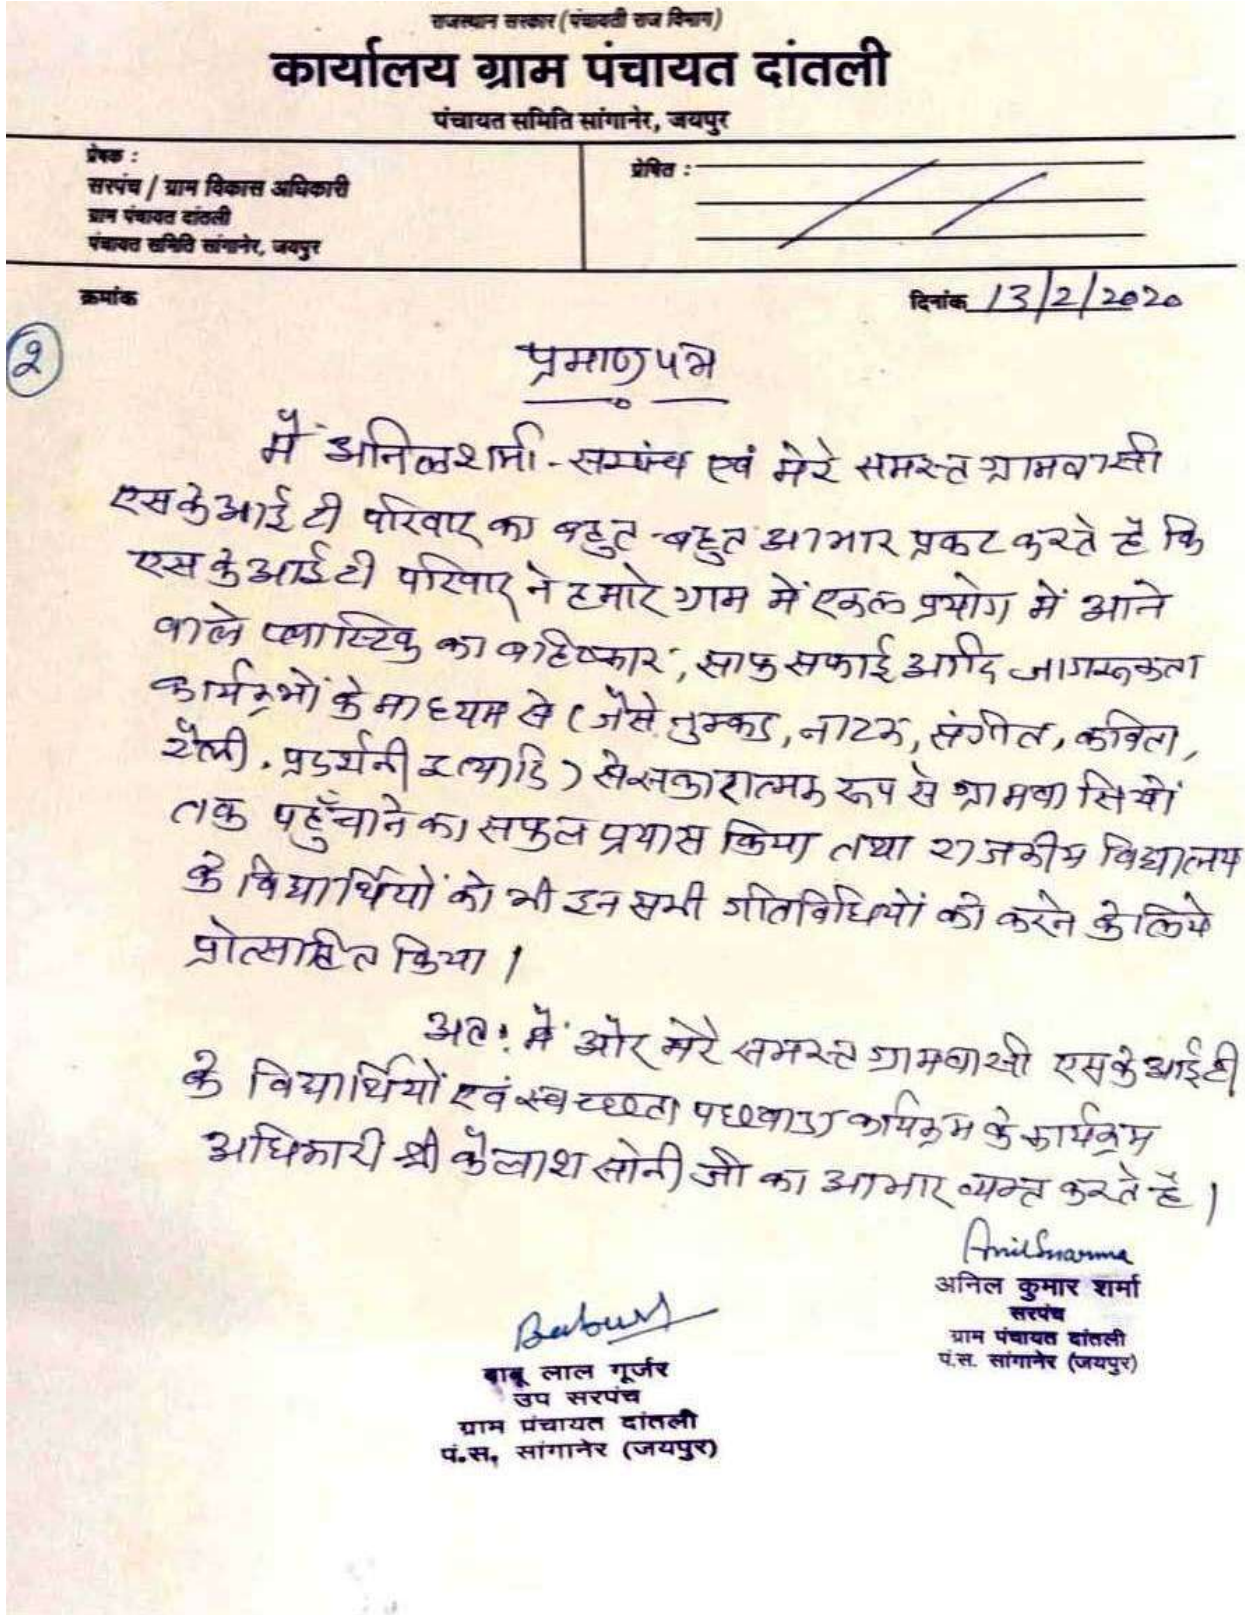 राजस्थान सरकार (पंचायती राज विभाग)
कार्यालय ग्राम पंचायत दांतली
पंचायत समिति सांगानेर, जयपुर
प्रेषक :
सरपंच / ग्राम विकास अधिकारी
ग्राम पंचायत दांतली
पंचायत समिति सांगानेर, जयपुर
प्रेषित :
क्रमांक
दिनांक 13/2/2020
2
प्रमाण पत्र
मैं अनिल शर्मा - सरपंच एवं मेरे समस्त ग्रामवासी
एस के आई टी परिवार का बहुत-बहुत आभार प्रकट करते हैं कि
एस के आई टी परिवार ने हमारे ग्राम में एकल प्रयोग में आने
वाले प्लास्टिक का बहिष्कार, साफ सफाई आदि जागरूकता
कार्यक्रमों के माध्यम से (जैसे नुक्कड, नाटक, संगीत, कविता,
रैली, प्रदर्शनी इत्यादि) से सकारात्मक रूप से ग्रामवासियों
तक पहुँचाने का सफल प्रयास किया तथा राजकीय विद्यालय
के विद्यार्थियों को भी इन सभी गतिविधियों को करने के लिये
प्रोत्साहित किया।
अतः मैं और मेरे समस्त ग्रामवासी एस के आई टी
के विद्यार्थियों एवं स्वच्छता पखवाडा कार्यक्रम के कार्यक्रम
अधिकारी श्री कैलाश सोनी जी का आभार व्यक्त करते है।
Anil Sharma
अनिल कुमार शर्मा
सरपंच
ग्राम पंचायत दांतली
पं.स. सांगानेर (जयपुर)
बाबू लाल गूर्जर
उप सरपंच
ग्राम पंचायत दांतली
पं.स. सांगानेर (जयपुर)